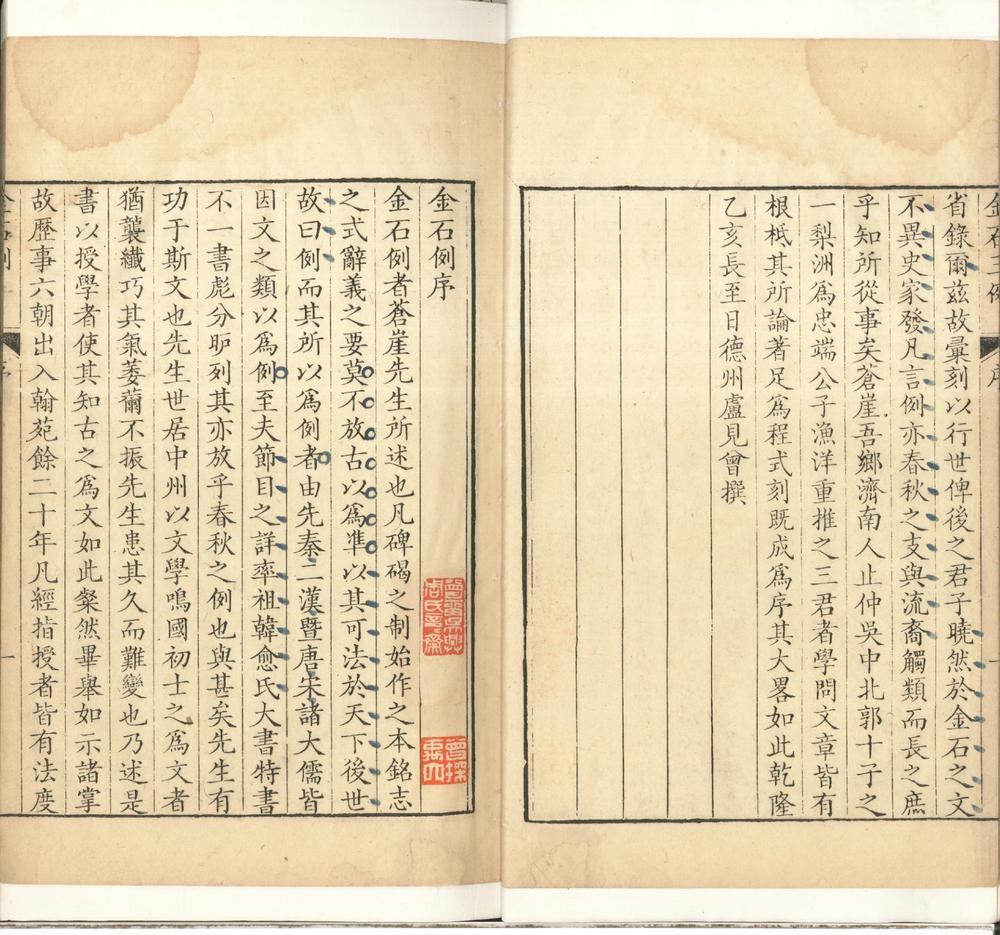 金石三例
序
一
省錄爾茲故彙刻以行世俾後之君子曉然於金石之文
不異史家發凡言例亦春秋之支與流裔觸類而長之庶
乎知所從事矣蒼崖吾鄉濟南人止仲吳中北郭十子之
一梨洲爲忠端公子漁洋重推之三君者學問文章皆有
根柢其所論著足爲程式刻既成爲序其大畧如此乾隆
乙亥長至日德州盧見曾撰
金石例序
金石例者蒼崖先生所述也凡碑碣之制始作之本銘志
之式辭義之要莫不放古以爲準以其可法於天下後世
故曰例而其所以爲例者由先秦二漢暨唐宋諸大儒皆
因文之類以爲例至夫節目之詳率祖韓愈氏大書特書
不一書彪分昈列其亦放乎春秋之例也與甚矣先生有
功于斯文也先生世居中州以文學鳴國初士之爲文者
猶襲纖巧其氣萎薾不振先生患其久而難變也乃述是
書以授學者使其知古之爲文如此粲然畢舉如示諸掌
故歷事六朝出入翰苑餘二十年凡經指授者皆有法度
金石例
序
一